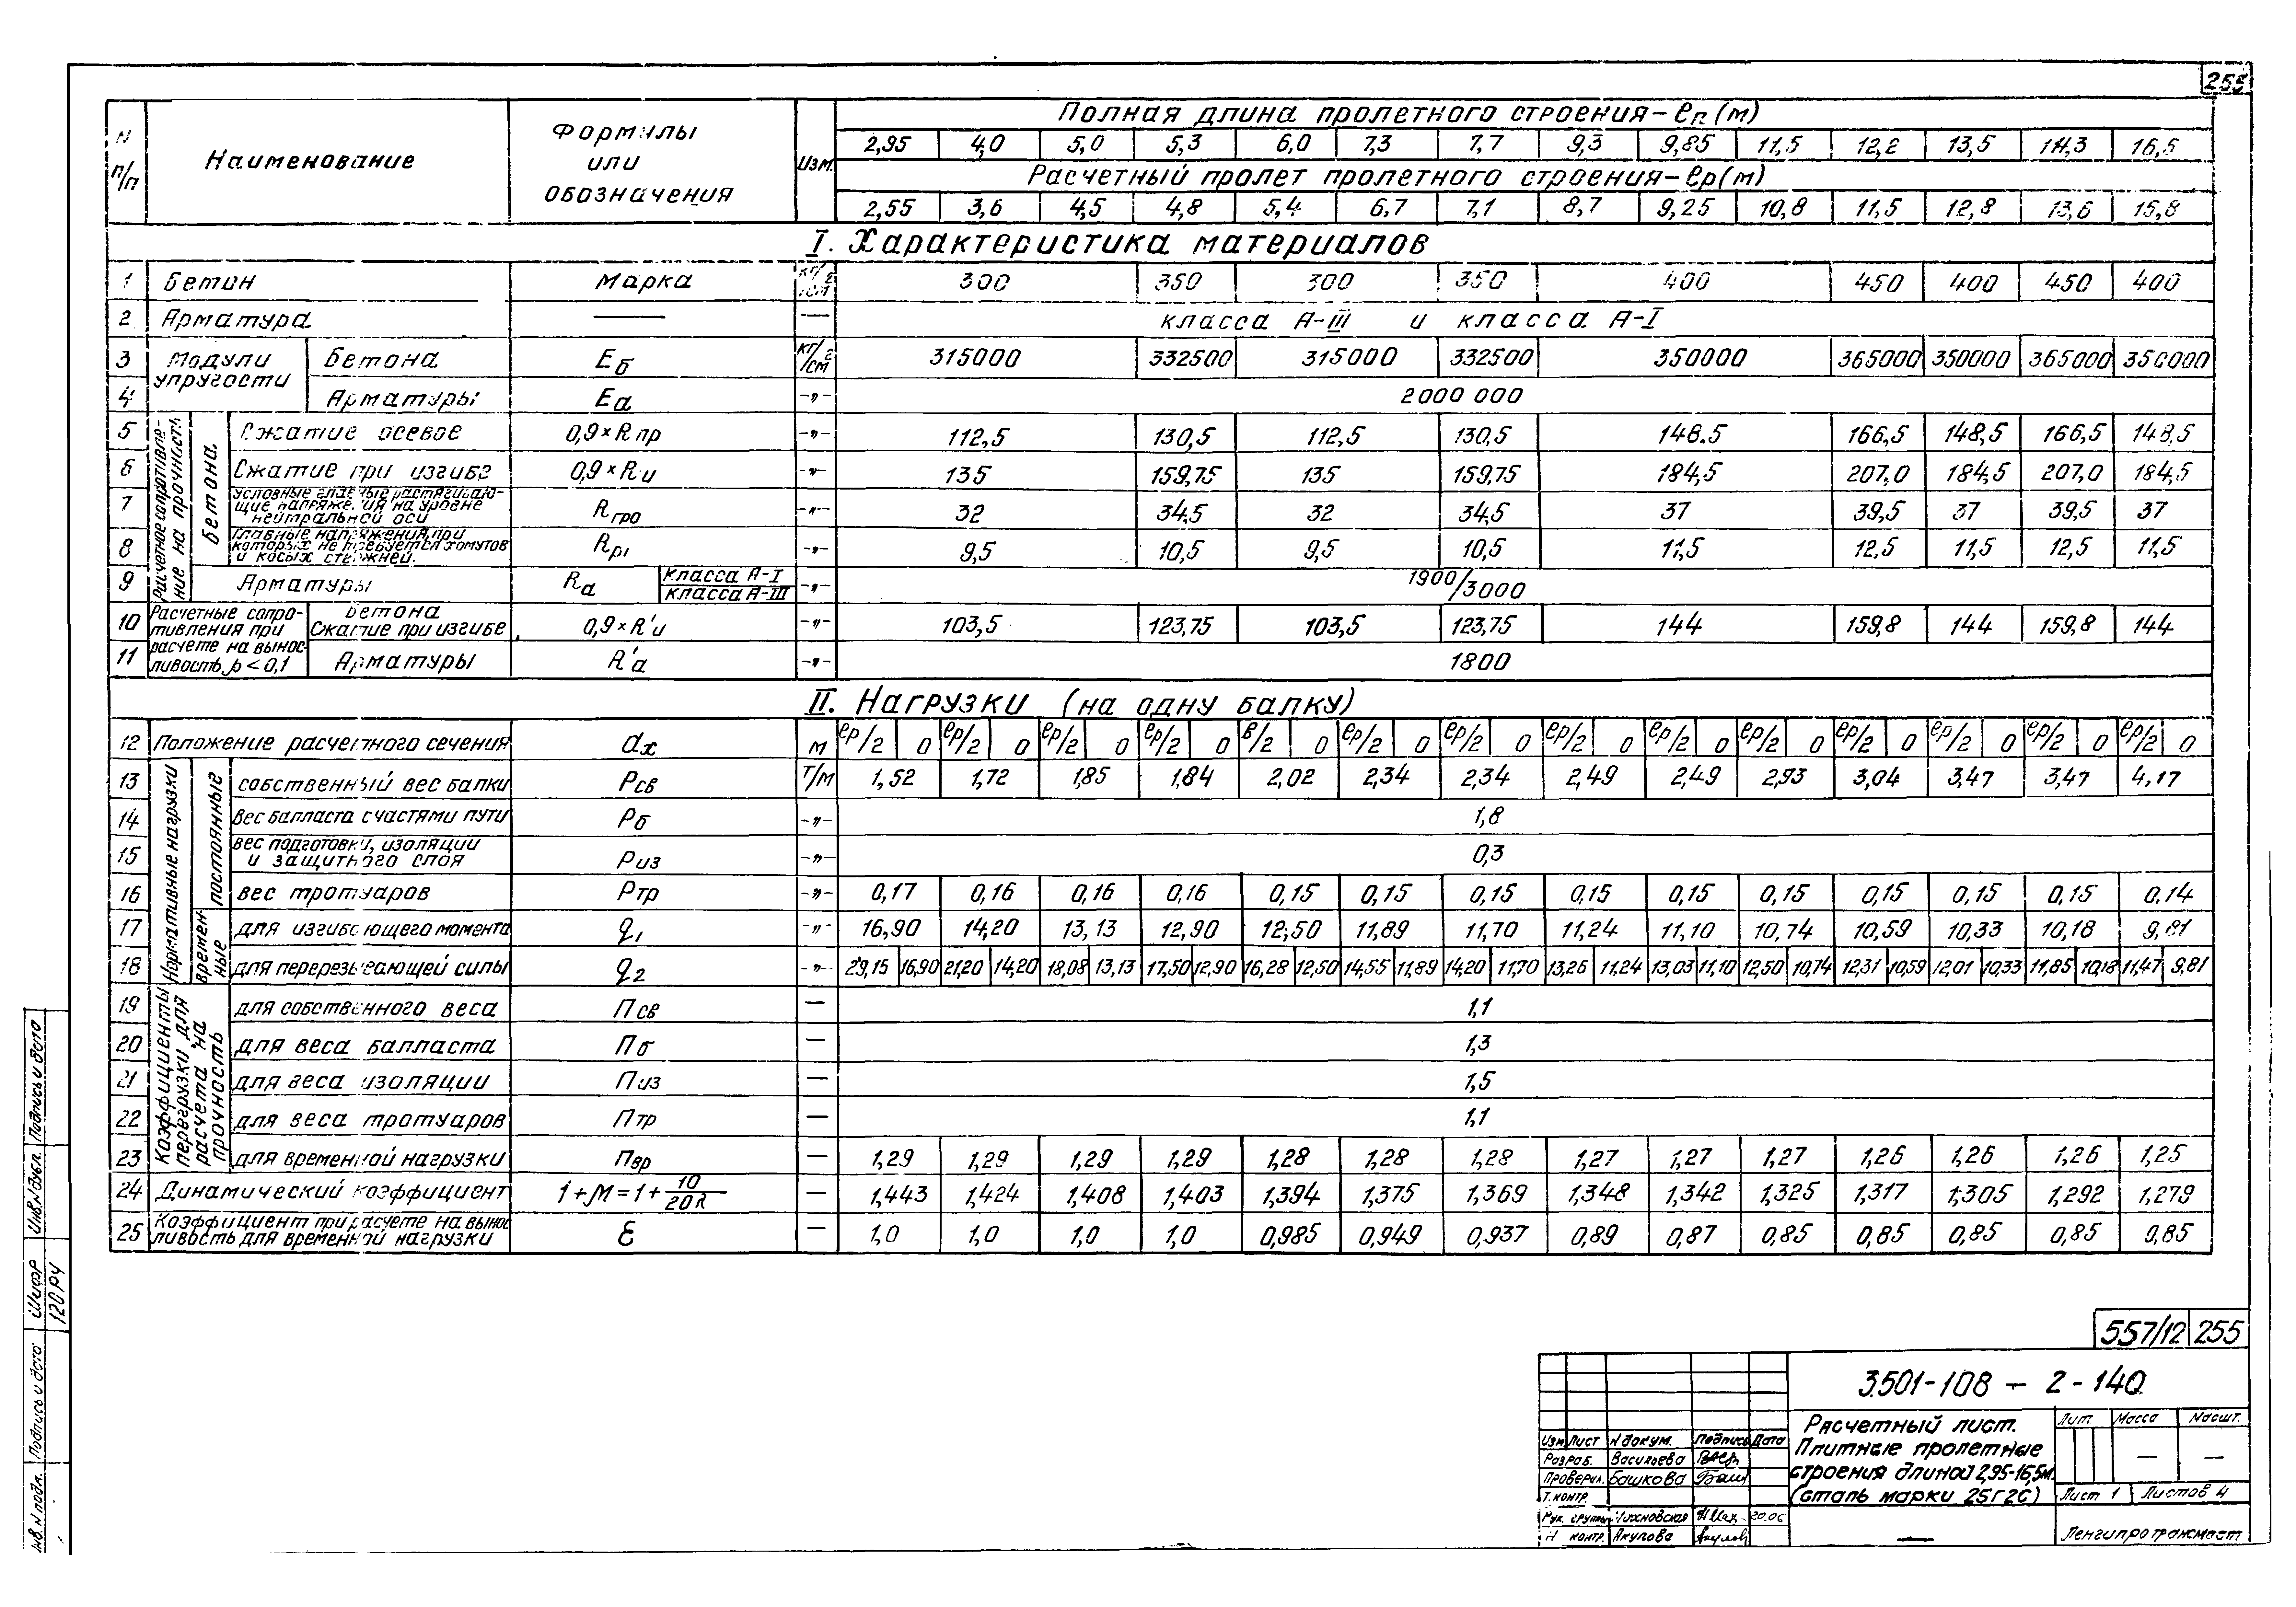 255
N п/п
Наименование
Формулы или обозначения
Изм.
Полная длина пролетного строения-ℓп(м)
2,95 4,0 5,0 5,3 6,0 7,3 7,7 9,3 9,85 11,5 12,2 13,5 14,3 16,5
Расчетный пролет пролетного строения-ℓр(м)
2,55 3,6 4,5 4,8 5,4 6,7 7,1 8,7 9,25 10,8 11,5 12,8 13,6 15,8
I. Характеристика материалов
1 Бетон Марка кг/см2 300 350 300 350 400 450 400 450 400
2 Арматура — — класса А-III и класса А-I
Модули упругости
3 Бетона Еб кг/см2 315000 332500 315000 332500 350000 365000 350000 365000 350000
4 Арматуры Еа -"- 2000 000
Расчетное сопротивление на прочность
бетона
5 Сжатие осевое 0,9×Rпр -"- 112,5 130,5 112,5 130,5 148,5 166,5 148,5 166,5 148,5
6 Сжатие при изгибе 0,9×Rи -"- 135 159,75 135 159,75 184,5 207,0 184,5 207,0 184,5
7 Условные главные растягивающие напряжения на уровне нейтральной оси Rгро -"- 32 34,5 32 34,5 37 39,5 37 39,5 37
8 Главные напряжения, при которых не требуется хомутов и косых стержней. Rр1 -"- 9,5 10,5 9,5 10,5 11,5 12,5 11,5 12,5 11,5
9 Арматуры Rа класса А-I класса А-III -"- 1900/3000
Расчетные сопротивления при расчете на выносливость, ρ < 0,1
10 Бетона Сжатие при изгибе 0,9×R'и -"- 103,5 123,75 103,5 123,75 144 159,8 144 159,8 144
11 Арматуры R'а -"- 1800
II. Нагрузки (на одну балку)
12 Положение расчетного сечения ах м ℓр/2 0 ℓр/2 0 ℓр/2 0 ℓр/2 0 ℓ/2 0 ℓр/2 0 ℓр/2 0 ℓр/2 0 ℓр/2 0 ℓр/2 0 ℓр/2 0 ℓр/2 0 ℓр/2 0 ℓр/2 0
Нормативные нагрузки
постоянные
13 собственный вес балки Рсв Т/м 1,52 1,72 1,85 1,84 2,02 2,34 2,34 2,49 2,49 2,93 3,04 3,47 3,47 4,17
14 вес балласта с частями пути Рб -"- 1,8
15 вес подготовки, изоляции и защитного слоя Риз -"- 0,3
16 вес тротуаров Ртр -"- 0,17 0,16 0,16 0,16 0,15 0,15 0,15 0,15 0,15 0,15 0,15 0,15 0,15 0,14
временные
17 для изгибающего момента q1 -"- 16,90 14,20 13,13 12,90 12,50 11,89 11,70 11,24 11,10 10,74 10,59 10,33 10,18 9,81
18 для перерезывающей силы q2 -"- 29,15 16,90 21,20 14,20 18,08 13,13 17,50 12,90 16,28 12,50 14,55 11,89 14,20 11,70 13,26 11,24 13,03 11,10 12,50 10,74 12,31 10,59 12,01 10,33 11,85 10,18 11,47 9,81
Коэффициенты перегрузки для расчета на прочность
19 для собственного веса Псв — 1,1
20 для веса балласта Пб — 1,3
21 для веса изоляции Пиз — 1,5
22 для веса тротуаров Птр — 1,1
23 для временной нагрузки Пвр — 1,29 1,29 1,29 1,29 1,28 1,28 1,28 1,27 1,27 1,27 1,26 1,26 1,26 1,25
24 Динамический коэффициент 1+μ=1+10/20λ — 1,443 1,424 1,408 1,403 1,394 1,375 1,369 1,348 1,342 1,325 1,317 1,305 1,292 1,279
25 Коэффициент при расчете на выносливость для временной нагрузки Ɛ — 1,0 1,0 1,0 1,0 0,985 0,949 0,937 0,89 0,87 0,85 0,85 0,85 0,85 0,85
557/12 255
3.501-108 - 2 - 140
Расчетный лист.
Плитные пролетные
строения длиной 2,95-16,5м.
(сталь марки 25Г2С)
Лит. Масса Масшт.
— —
Лист 1 Листов 4
Ленгипротрансмост
Изм Лист N докум. Подпись Дата
Разраб. Васильева
Проверил. Башкова
Т. контр.
Рук. группы
Н. контр. Акулова
Инв. N подл. Подпись и дата Шифр 120РЧ Инв. N дубл. Подпись и дата